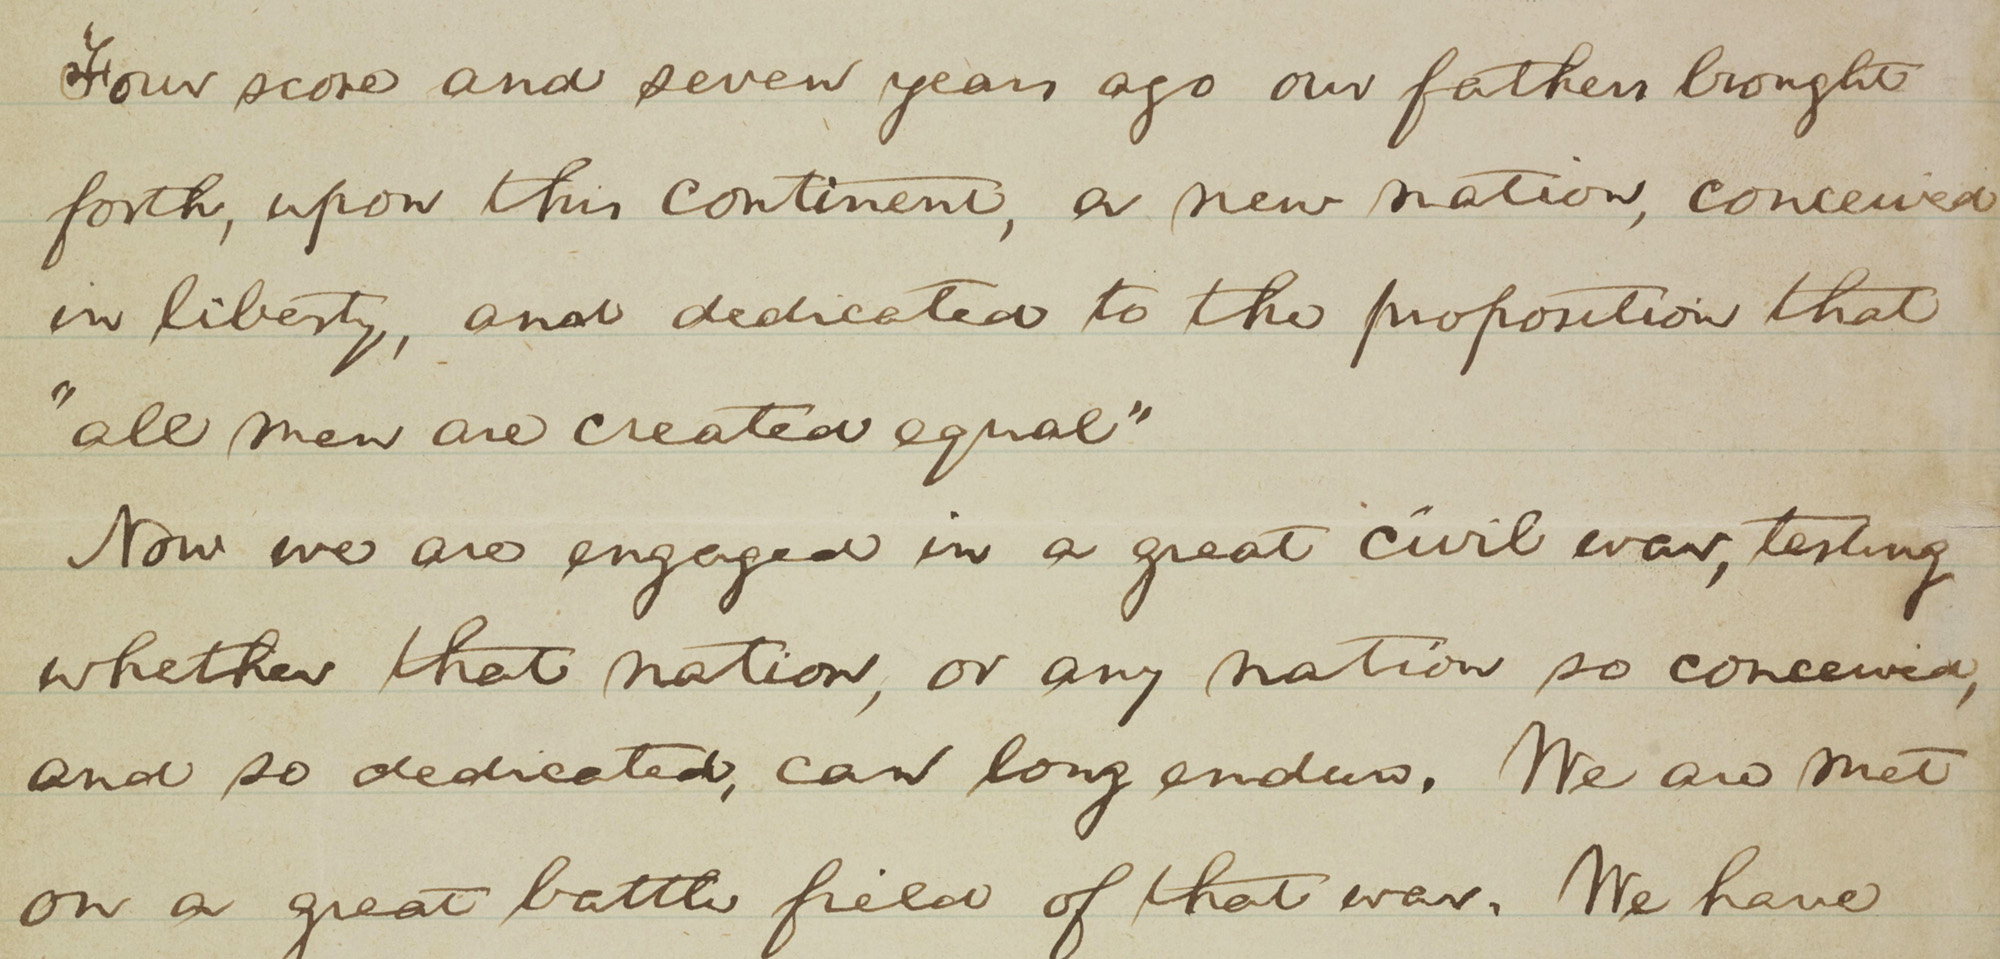 Four score and seven years ago our fathers brought
forth, upon this continent, a new nation, conceived
in liberty, and dedicated to the proposition that
"all men are created equal"
Now we are engaged in a great civil war, testing
whether that nation, or any nation so conceived,
and so dedicated, can long endure. We are met
on a great battle field of that war. We have